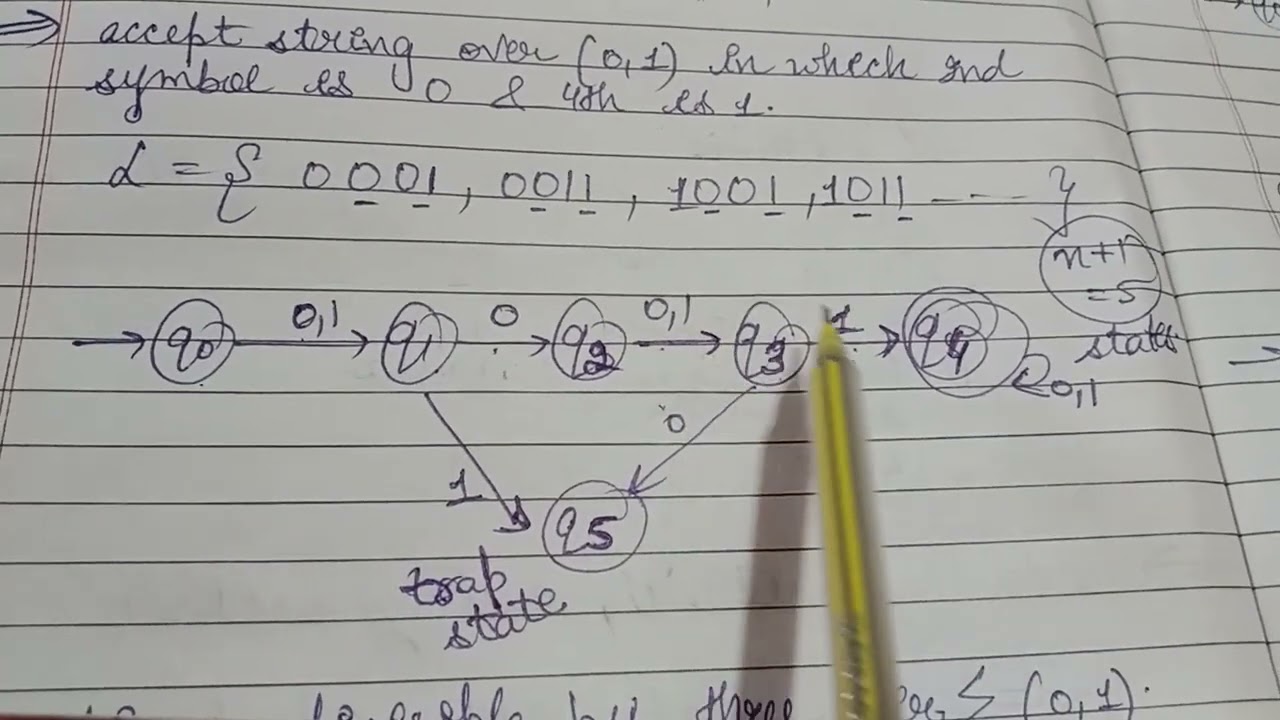 ⇒ accept string over (0,1) in which 2nd
symbol is 0 & 4th is 1.
L = { 0001, 0011, 1001, 1011 ---- }
n+1
= 5
states
→ q0 0,1 → q1 0 → q2 0,1 → q3 1 → q4
0,1
1 0
q5
trap
state
(0,1).